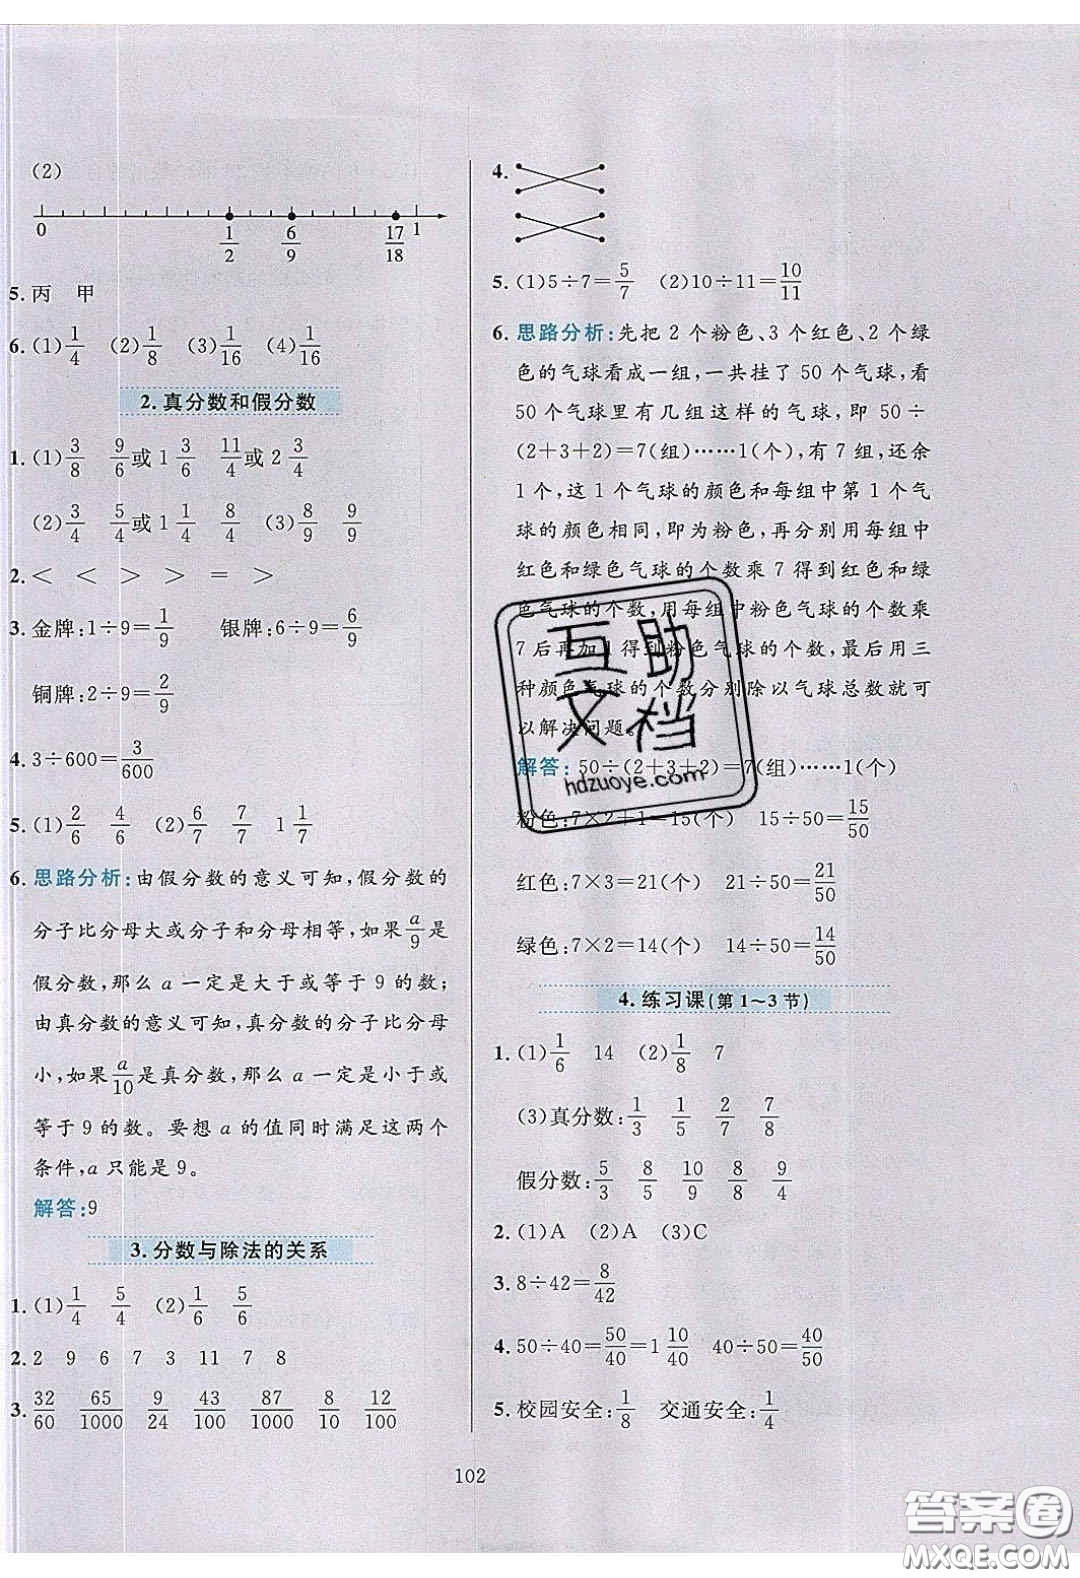 (2)
0 1/2 6/9 17/18 1
5. 丙 甲
6. (1) 1/4 (2) 1/8 (3) 1/16 (4) 1/16
2. 真分数和假分数
1. (1) 3/8 9/6 或 1 3/6 11/4 或 2 3/4
(2) 3/4 5/4 或 1 1/4 8/4 (3) 8/9 9/9
2. < < > > = >
3. 金牌:1÷9=1/9 银牌:6÷9=6/9
铜牌:2÷9=2/9
4. 3÷600=3/600
5. (1) 2/6 4/6 (2) 6/7 7/7 1 1/7
6. 思路分析:由假分数的意义可知,假分数的
分子比分母大或分子和分母相等,如果 a/9 是
假分数,那么 a 一定是大于或等于 9 的数;
由真分数的意义可知,真分数的分子比分母
小,如果 a/10 是真分数,那么 a 一定是小于或
等于 9 的数。要想 a 的值同时满足这两个
条件,a 只能是 9。
解答:9
3. 分数与除法的关系
1. (1) 1/4 5/4 (2) 1/6 5/6
2. 2 9 6 7 3 11 7 8
3. 32/60 65/1000 9/24 43/100 87/1000 8/10 12/100
4.
5. (1)5÷7=5/7 (2)10÷11=10/11
6. 思路分析:先把 2 个粉色、3 个红色、2 个绿
色的气球看成一组,一共挂了 50 个气球,看
50 个气球里有几组这样的气球,即 50÷
(2+3+2)=7(组)……1(个),有 7 组,还余
1 个,这 1 个气球的颜色和每组中第 1 个气
球的颜色相同,即为粉色,再分别用每组中
红色和绿色气球的个数乘 7 得到红色和绿
色气球的个数,用每组中粉色气球的个数乘
7 后再加 1 得到粉色气球的个数,最后用三
种颜色气球的个数分别除以气球总数就可
以解决问题。
解答:50÷(2+3+2)=7(组)……1(个)
粉色:7×2+1=15(个) 15÷50=15/50
红色:7×3=21(个) 21÷50=21/50
绿色:7×2=14(个) 14÷50=14/50
4. 练习课(第 1~3 节)
1. (1) 1/6 14 (2) 1/8 7
(3)真分数:1/3 1/5 2/7 7/8
假分数:5/3 8/5 10/9 8/8 9/4
2. (1)A (2)A (3)C
3. 8÷42=8/42
4. 50÷40=50/40=1 10/40 40÷50=40/50
5. 校园安全:1/8 交通安全:1/4
102
互助
文档
hdzuoye.com
答案圈
MXQE.COM